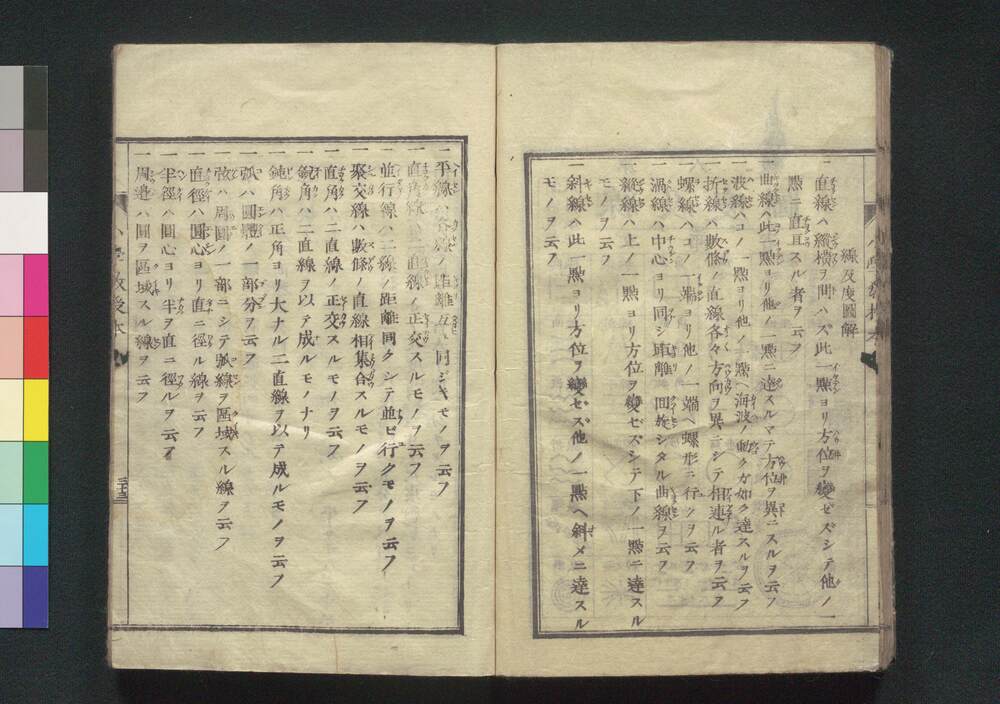 線及度圖解
一直線ハ縱橫ヲ問ハズ此一㸃ヨリ方位ヲ變ゼズシテ他ノ一
㸃ニ直直スル者ヲ云フ
一曲線ハ此一㸃ヨリ他ノ一㸃ニ達スルマテ方位ヲ異ニスルヲ云フ
一波線ハコノ一㸃ヨリ他ノ一㸃ヘ海波ノ動クガ如ク達スルヲ云フ
一折線ハ數條ノ直線各々方向ヲ異ニシテ相連ル者ヲ云フ
一螺線ハコノ一端ヨリ他ノ一端ヘ螺形ニ行クヲ云フ
一渦線ハ中心ヨリ同シ距離ニ回旋シタル曲線ヲ云フ
一縱線ハ上ノ一㸃ヨリ方位ヲ變ゼズシテ下ノ一㸃ニ達スル
モノヲ云フ
一斜線ハ此一㸃ヨリ方位ヲ變セズ他ノ一㸃ヘ斜メニ達スル
モノヲ云フ
一平線ハ各線ノ距離互ニ同ジキモノヲ云フ
一直角線ハ二直線ノ正交スルモノヲ云フ
一並行線ハ二線ノ距離同クシテ並ビ行クモノヲ云フ
一聚交線ハ數條ノ直線相集合スルモノヲ云フ
一直角ハ二直線ノ正交スルモノヲ云フ
一銳角ハ二直線ヲ以テ成ルモノナリ
一鈍角ハ正角ヨリ大ナル二直線ヲ以テ成ルモノヲ云フ
一弧ハ圓體ノ一部分ヲ云フ
一弦ハ周圓ノ一部ニシテ弧線ヲ區域スル線ヲ云フ
一直徑ハ圓心ヨリ直ニ徑ル線ヲ云フ
一半徑ハ圓心ヨリ半ヲ直ニ徑ルヲ云フ
一周邉ハ圓ヲ區域スル線ヲ云フ
三十三